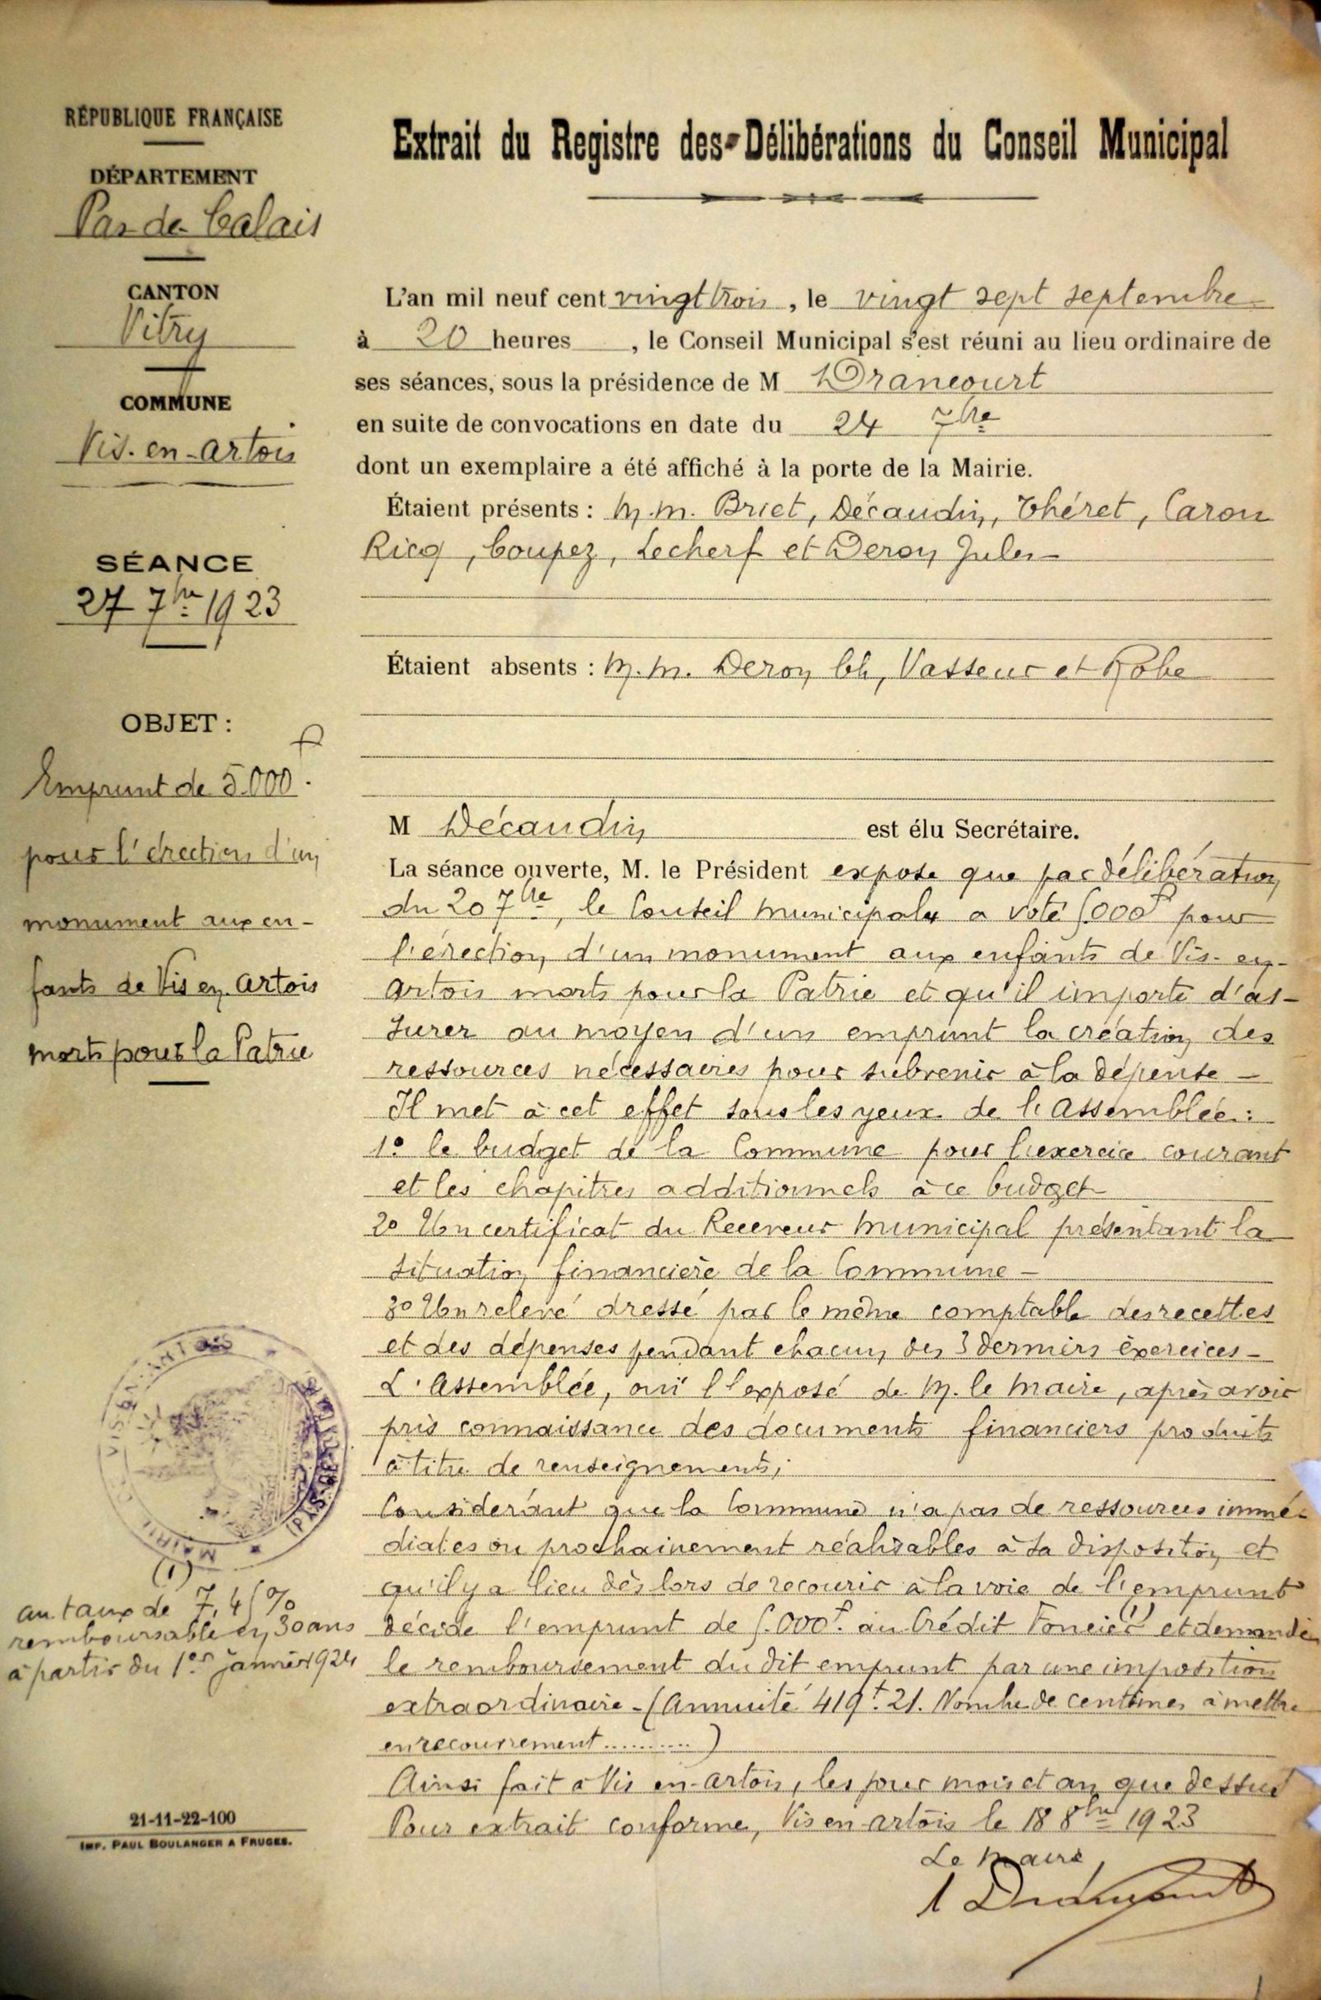 RÉPUBLIQUE FRANÇAISE
DÉPARTEMENT
Pas-de-Calais
CANTON
Vitry
COMMUNE
Vis-en-Artois
SÉANCE
27 7bre 1923
OBJET :
Emprunt de 5.000f.
pour l'érection d'un
monument aux en-
fants de Vis en Artois
morts pour la Patrie
MAIRIE DE VIS-EN-ARTOIS
(PAS-DE-CALAIS)
(1)
au taux de 7,45%
remboursable en 30 ans
à partir du 1er janvier 1924
21-11-22-100
IMP. PAUL BOULANGER A FRUGES.
Extrait du Registre des Délibérations du Conseil Municipal
L'an mil neuf cent vingt trois, le vingt sept septembre
à 20 heures , le Conseil Municipal s'est réuni au lieu ordinaire de
ses séances, sous la présidence de M Drancourt
en suite de convocations en date du 24 7bre
dont un exemplaire a été affiché à la porte de la Mairie.
Étaient présents : M.M. Briet, Décaudin, Théret, Caron
Ricq, Coupez, Lecherf et Deron Jules
Étaient absents : M.M. Deron Ch, Vasseur et Robe
M Décaudin est élu Secrétaire.
La séance ouverte, M. le Président expose que par délibération
du 20 7bre, le Conseil Municipal a voté 5.000f pour
l'érection d'un monument aux enfants de Vis-en-
Artois morts pour la Patrie et qu'il importe d'as-
surer au moyen d'un emprunt la création des
ressources nécessaires pour subvenir à la dépense -
Il met à cet effet sous les yeux de l'Assemblée :
1° le budget de la Commune pour l'exercice courant
et les chapitres additionnels à ce budget
2° Un certificat du Receveur Municipal présentant la
situation financière de la Commune -
3° Un relevé dressé par le même comptable des recettes
et des dépenses pendant chacun des 3 derniers exercices -
L'Assemblée, ouï l'exposé de M. le Maire, après avoir
pris connaissance des documents financiers produits
à titre de renseignements ;
Considérant que la Commune n'a pas de ressources immé-
diates ou prochainement réalisables à sa disposition et
qu'il y a lieu dès lors de recourir à la voie de l'emprunt
décide l'emprunt de 5.000f. au Crédit Foncier (1) et demande
le remboursement du dit emprunt par une imposition
extraordinaire - (Annuité 419f.21. Nombre de centimes à mettre
en recouvrement ..........)
Ainsi fait à Vis en-Artois, les jour mois et an que dessus
Pour extrait conforme, Vis en-Artois le 18 8bre 1923
Le Maire,
Drancourt